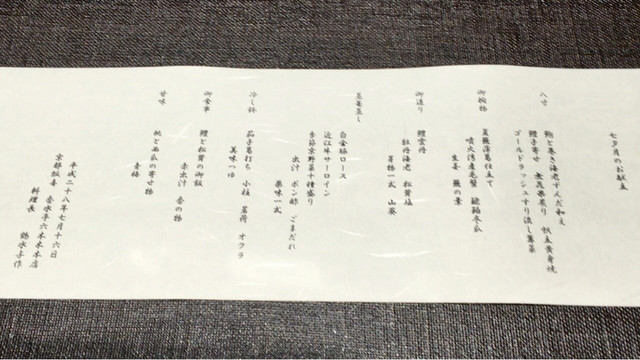 七夕月のお献立
八寸
鮑と巻き海老ずんだ和え
鱧子寄せ 無花果煮り 帆立黄身焼
ゴールドラッシュすり流し
御椀物
葛仕立て
噴火湾産毛蟹 冬瓜
生姜
御造り
鱧 雲丹
牡丹海老 松茸塩
芽物一式 山葵
蒸し
白金豚ロース
近江牛サーロイン
季節京野菜十種盛り
出汁 ポン酢 ごまだれ
薬味一式
冷し鉢
茄子葛打ち 小柱 茗荷 オクラ
美味つゆ
御食事
鱧と松茸の御飯
赤出汁 香の物
甘味
桃と西瓜の寄せ物
青梅
平成二十八年七月十六日
六本木本店
料理長